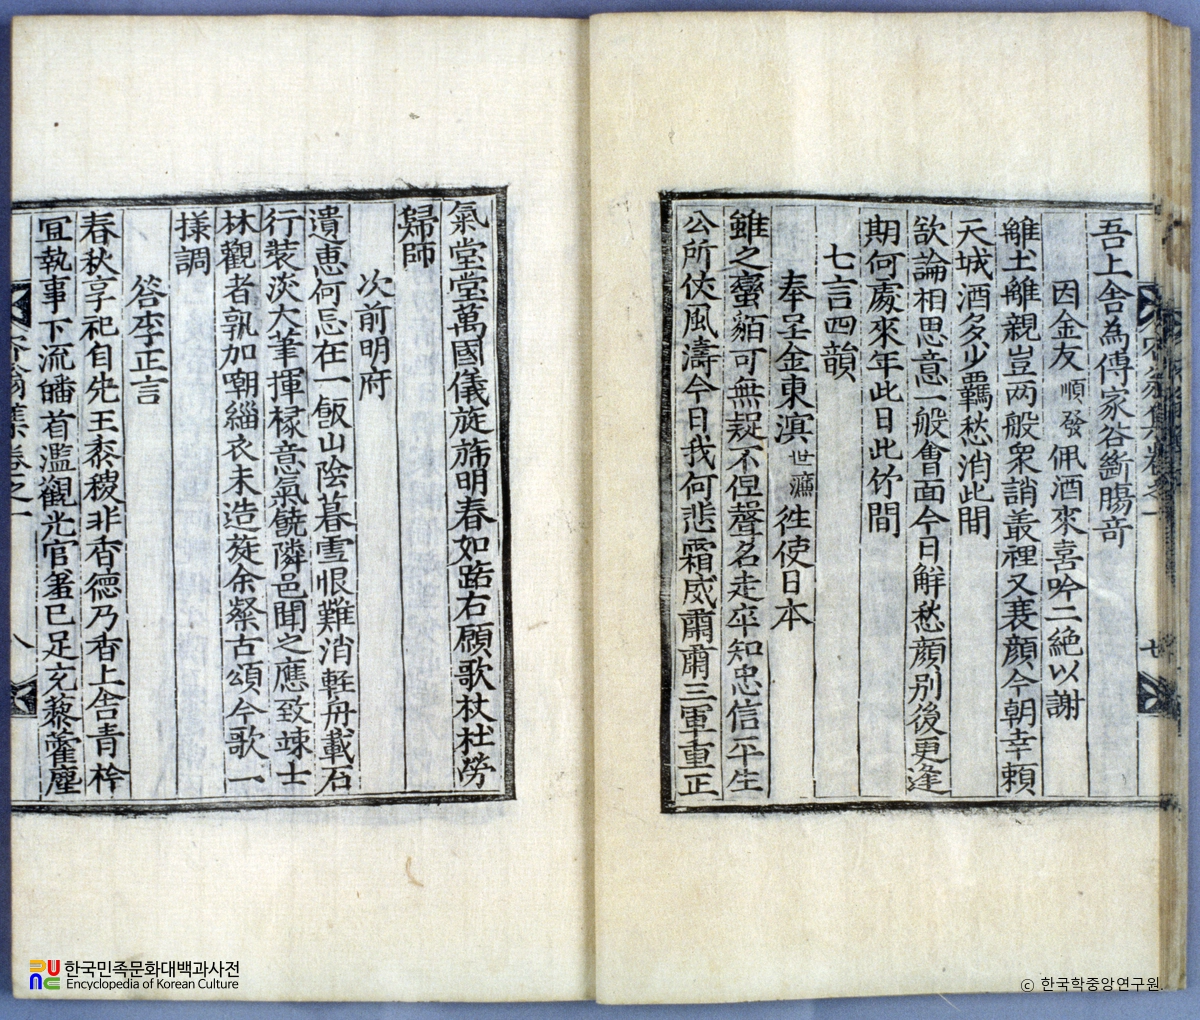 吾上舍為傳家谷斷膓竒
因金友順發佩酒來喜吟二絶以謝
雖土雖親豈两般衆誚叢裡又衰顔今朝幸頼
天城酒多少羈愁消此間
欲論相思意一般會面今日觧愁顔别後更逢
期何處來年此日此竹間
七言四韻
奉呈金東溟世濂徃使日本
雖之蠻貊可無疑不但聲名走卒知忠信平生
公所伏風濤今日我何悲霜威肅肅三軍重正
七
氣堂堂萬國儀旌斾明春如踏右願歌杖杜勞
歸師
次前明府
遺恵何忘在一飯山陰暮雪恨難消軽舟載石
行裝淡大筆揮椽意氣饒隣邑聞之應致竦士
林觀者孰加嘲緇衣未造旋余粲古頌今歌一
様調
答李正言
春秋享祀自先王黍稷非香德乃香上舍青衿
宜執事下流皤首濫觀光官羞已足充藜藿
集卷之一
八
한국민족문화대백과사전
Encyclopedia of Korean Culture
ⓒ 한국학중앙연구원